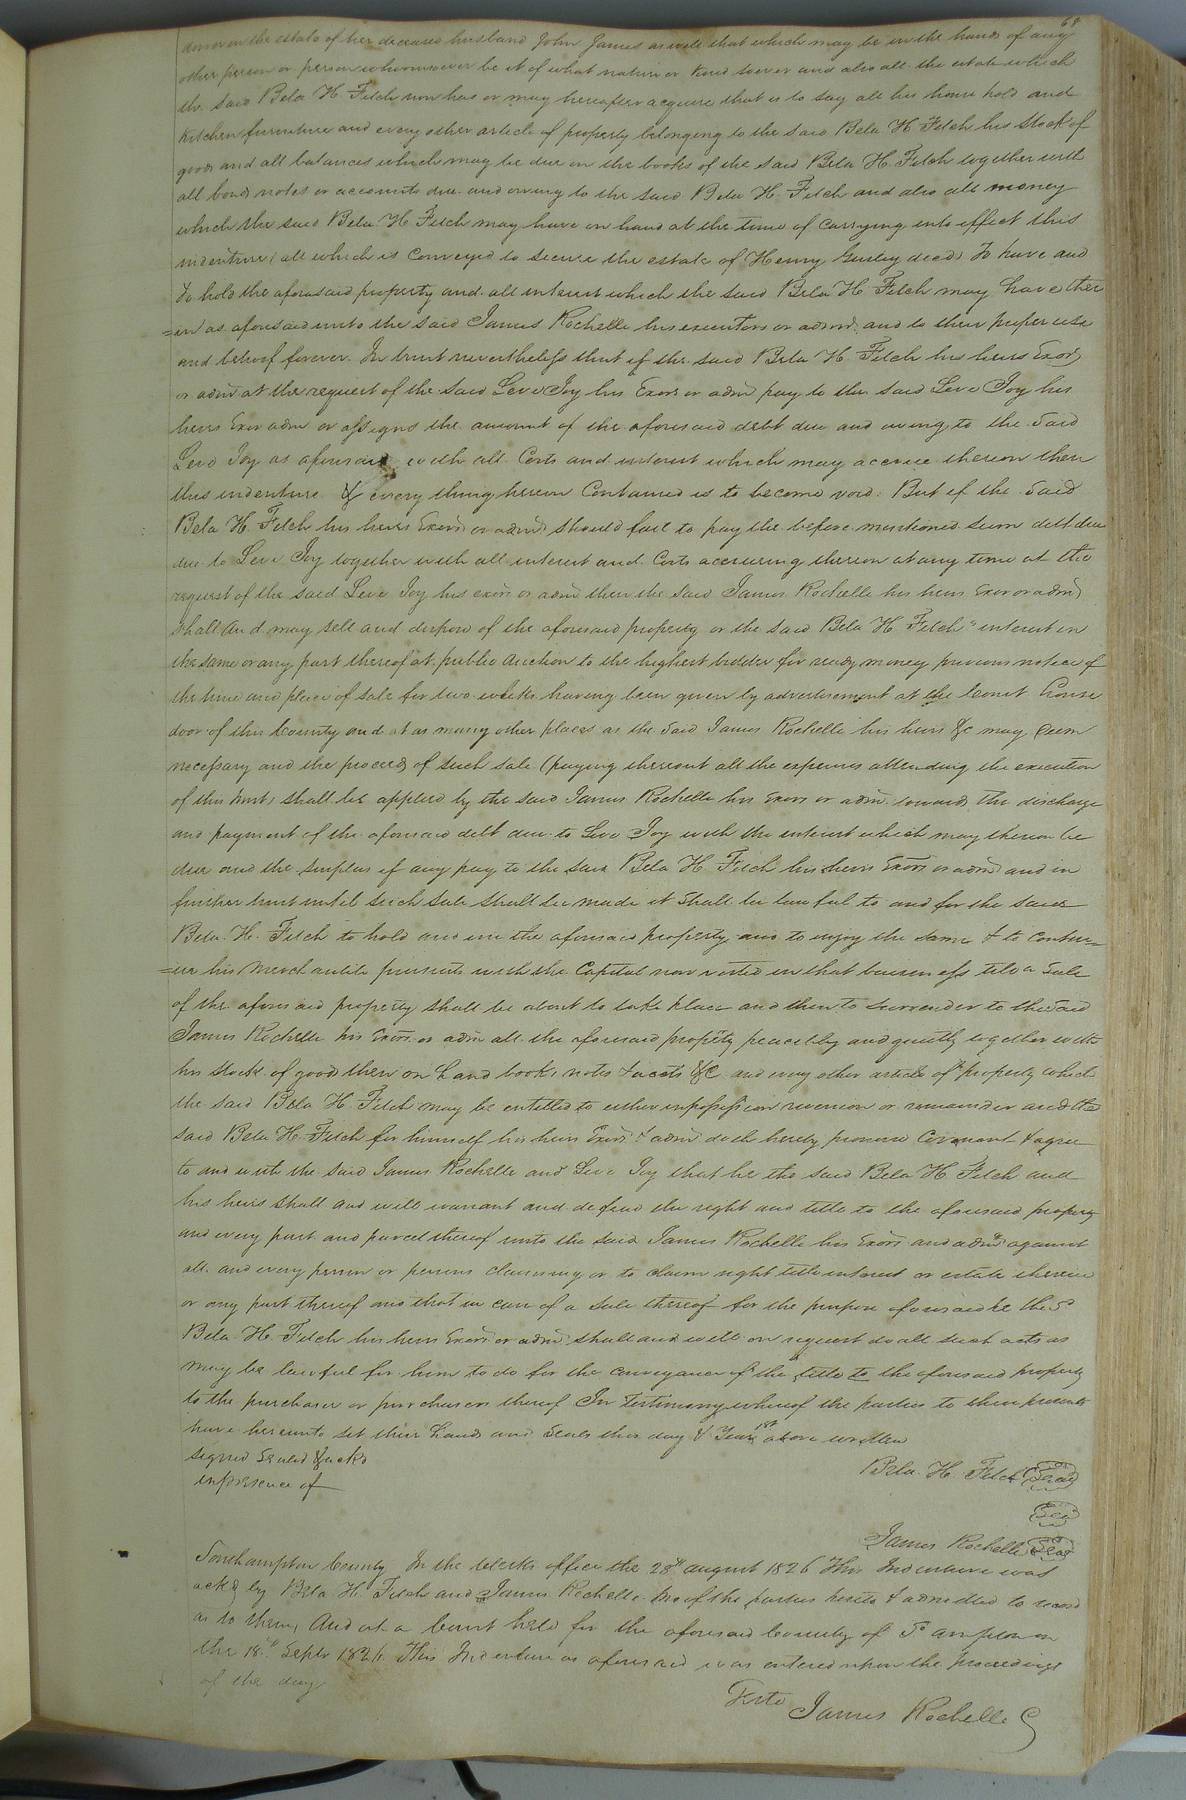 68
dower in the estate of her deceased husband John James as well that which may be in the hands of any
other person or person whomsoever be it of what nature or kind soever and also all the estate which
the said Bela H. Fitch now has or may hereafter acquire that is to say all his house hold and
kitchen furniture and every other article of property belonging to the said Bela H Fitch his Stock of
goods and all balances which may be due on the books of the said Bela H. Fitch together with
all bonds notes or accounts due and owing to the said Bela H. Fitch and also all money
which the said Bela H Fitch may have on hand at the time of carrying into effect this
indenture, all which is Conveyed to secure the estate of Henry Gurley decd, To have and
to hold the aforesaid property and all interest which the said Bela H Fitch may have ther
=in as aforesaid unto the said James Rochelle his executors or admrs, and to their proper use
and behoof forever. In trust nevertheless that if the said Bela H Fitch his heirs Exors
or adm at the request of the said Levi Joy his Exors or adm pay to the said Levi Joy his
heirs Exor adm or assigns the amount of the aforesaid debt due and owing to the Said
Levi Joy as aforesaid with all Costs and interest which may accrue thereon then
this indenture & every thing herein Contained is to become void. But if the Said
Bela H Fitch his heirs Exors or adm should fail to pay the before mentioned sum debt due
due to Levi Joy together with all interest and Costs accruing thereon at any time at the
request of the said Levi Joy his exors or adm then the said James Rochelle his heirs Exor or adm
Shall and may sell and dispose of the aforesaid property or the said Bela H Fitch" interest in
the same or any part thereof at public Auction to the highest bidder for ready money previous notice of
the time and place of sale for two weeks having been given by advertisement at the Court house
door of this County and at as many other places as the Said James Rochelle his heirs &c may deem
necessary and the proceeds of such sale (paying thereout all the expenses attending the execution
of this trust, shall be applied by the said James Rochelle his Exors or adm. towards the discharge
and payment of the aforesaid debt due to Levi Joy with the interest which may thereon be
due and the surplus if any pay to the said Bela H Fitch his heirs Exors or adm and in
further trust until such Sale shall be made it shall be lawful to and for the said
Bela H. Fitch to hold and use the aforesaid property and to enjoy the same & to contin=
=ue his Merchantile pursuits with the Capital now vested in that business till a Sale
of the aforesaid property shall be about to take place and then to Surrender to the Said
James Rochelle his Exors. or adm all the aforesaid property peaceably and quietly together with
his stock of goods then on hand books, notes & accts &c and every other article of property which
the said Bela H Fitch may be entitled to either in possession reversion or remainder and the
said Bela H. Fitch for himself his heirs Exors. & adm doth hereby promise Covenant & agree
to and with the said James Rochelle and Levi Joy that he the said Bela H Fitch and
his heirs shall and will warrant and defend the right and title to the aforesaid property
and every part and parcel thereof unto the said James Rochelle his Exors and admrs against
all and every person or persons claiming or to claim right title interest or estate therein
or any part thereof and that in case of a Sale thereof for the purpose aforesaid he the Sd
Bela H. Fitch his heirs Exors or adm shall and will on request do all such acts as
may be lawful for him to do for the conveyance of the title to the aforesaid property
to the purchaser or purchasers thereof In Testimony whereof the parties to these presents
have hereunto set their hands and Seals this day & Year 1st above written
Signed Sealed & ackd
in presence of
Bela. H. Fitch Seal
Seal
James Rochelle Seal
Southampton County In the Clerks office the 28th august 1826 This Indenture was
ackd by Bela H. Fitch and James Rochelle two of the parties hereto & admitted to record
as to them, And at a Court held for the aforesaid County of S°ampton on
the 18th Septr 1826. This Indenture as aforesaid was entered upon the proceedings
of the day
Teste James Rochelle C